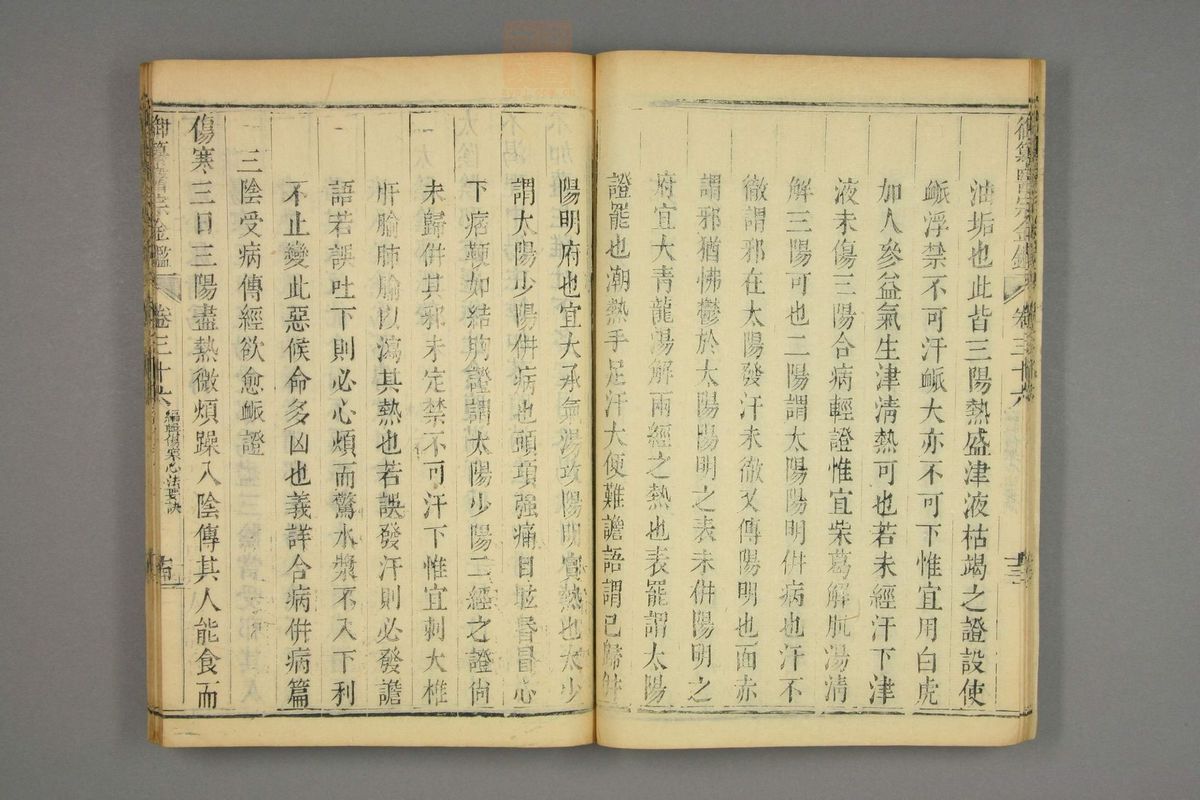 御纂醫宗金鑑 卷三十六
油垢也此皆三陽熱盛津液枯竭之證設使
脈浮禁不可汗脈大亦不可下惟宜用白虎
加人參益氣生津清熱可也若未經汗下津
液未傷三陽合病輕證惟宜柴葛解肌湯清
解三陽可也二陽謂太陽陽明併病也汗不
徹謂邪在太陽發汗未徹又傳陽明也面赤
謂邪猶怫鬱於太陽陽明之表未併陽明之
府宜大青龍湯解兩經之熱也表罷謂太陽
證罷也潮熱手足汗大便難譫語謂已歸併
陽明府也宜大承氣湯攻陽明實熱也太少
謂太陽少陽併病也頭項强痛目眩昏冒心
下痞鞕如結胷證謂太陽少陽二經之證尙
未歸併其邪未定禁不可汗下惟宜刺大椎
肝腧肺腧以瀉其熱也若誤發汗則必發譫
語若誤吐下則必心煩而驚水漿不入下利
不止變此惡候命多凶也義詳合病併病篇
三陰受病傳經欲愈脈證
傷寒三日三陽盡熱微煩躁入陰傳其人能食而
御纂醫宗金鑑 卷三十六 編輯傷寒心法要訣